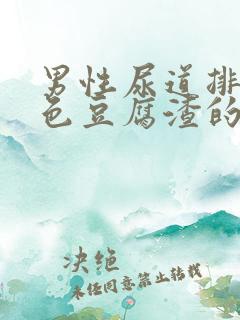 男性尿道排
色豆腐渣的
决绝
未经同意禁止转载